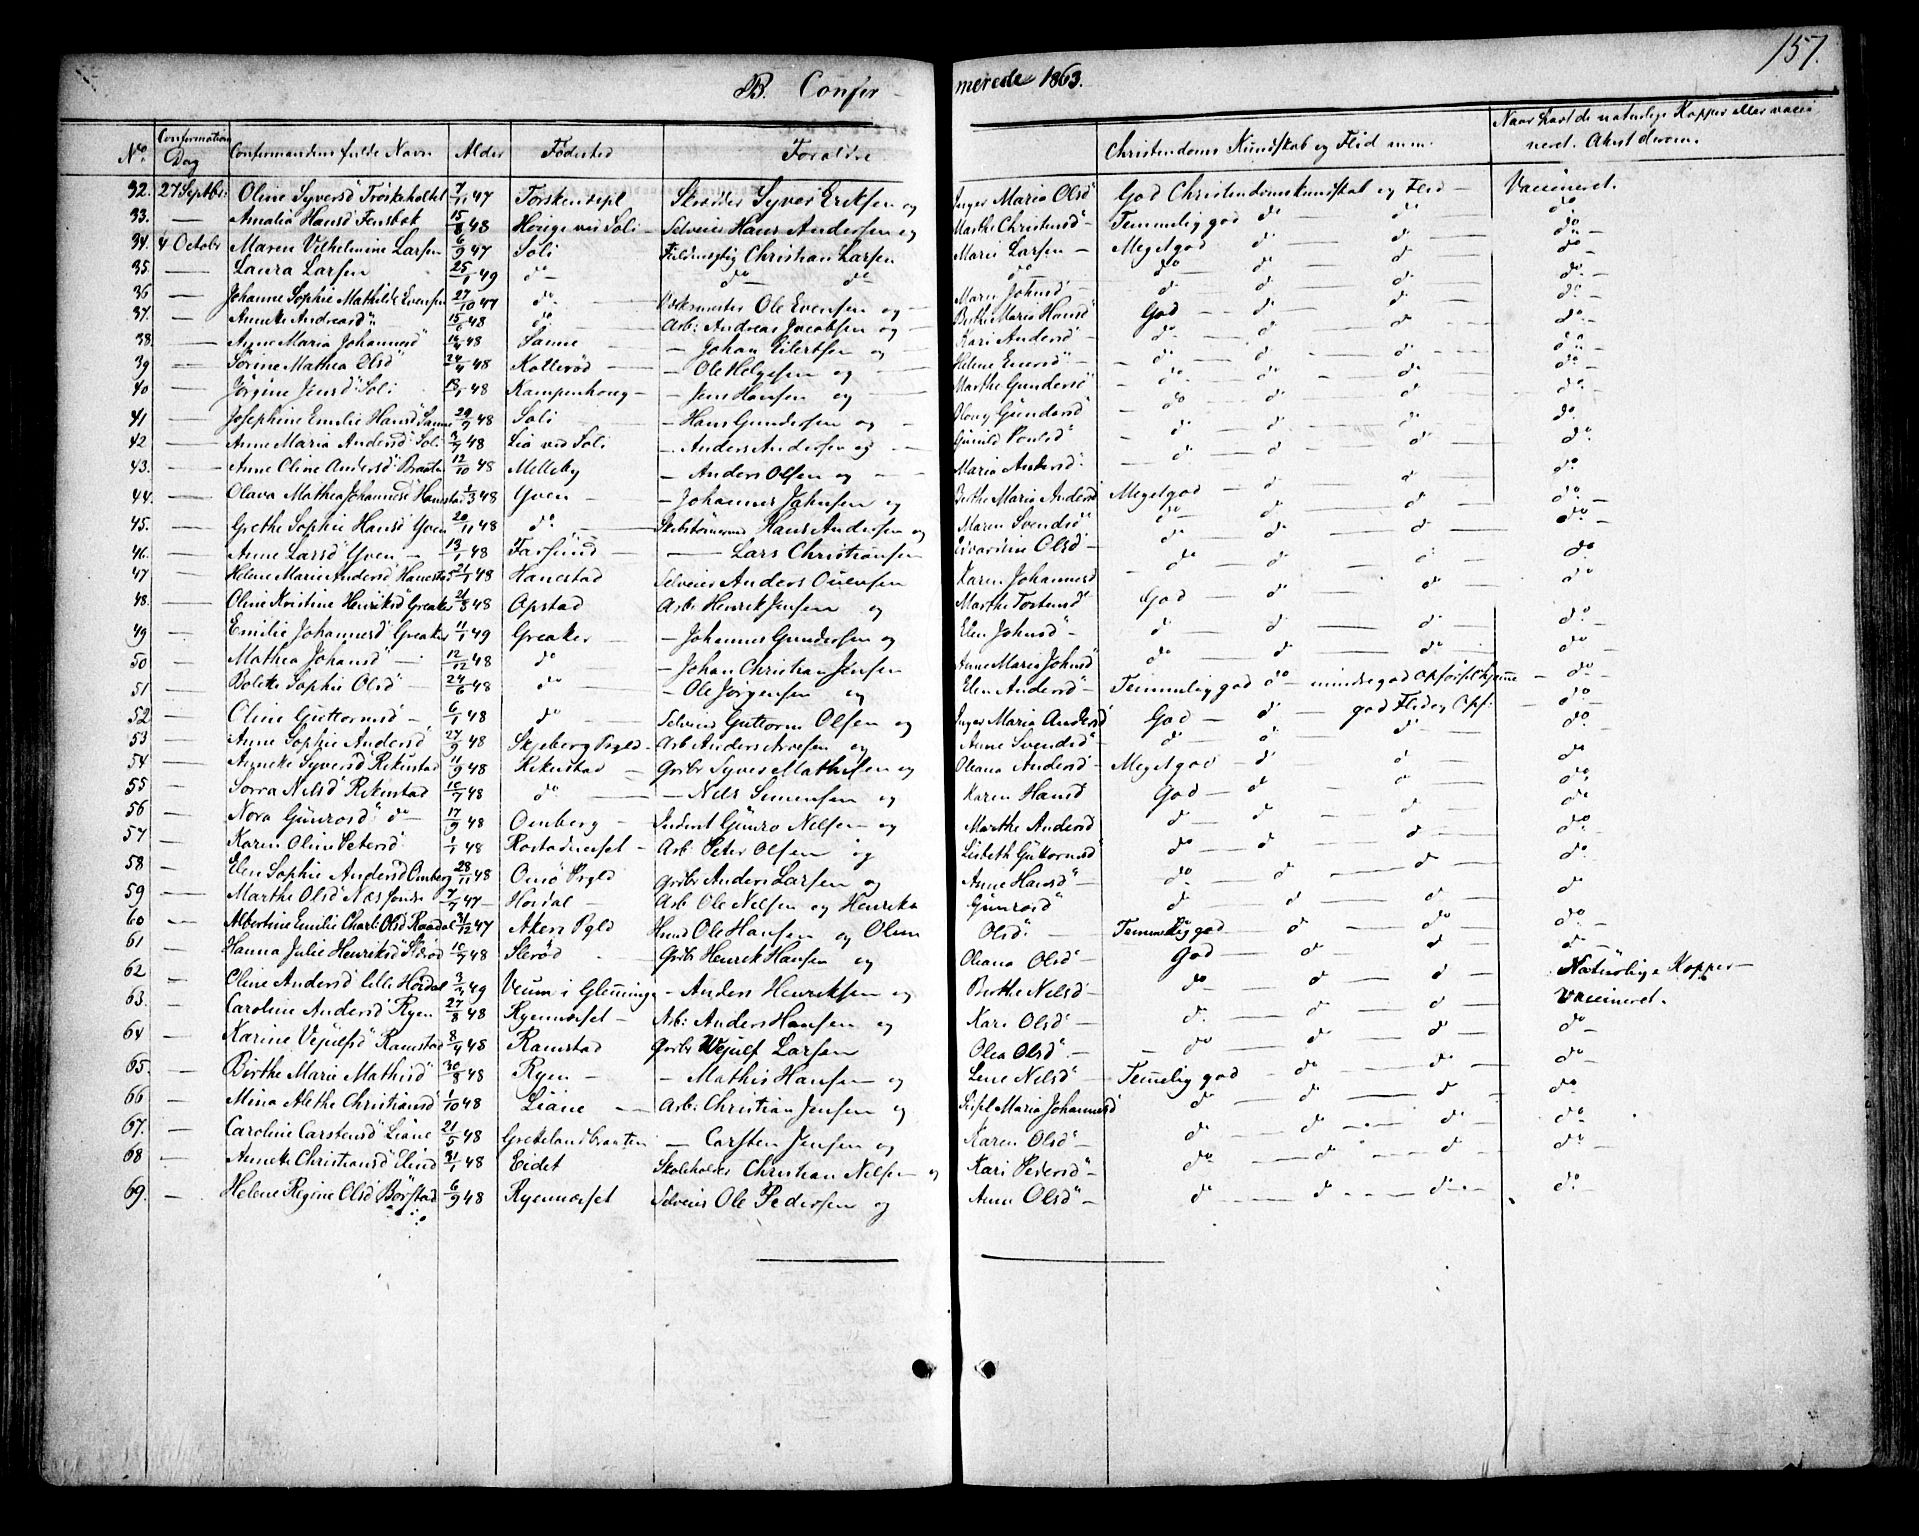 157.
B. Confir- merede 1863.
No. Confirmations Dag Confirmandens fulde Navn Alder Fødested Forældre Christendoms Kundskab og Flid m.m. Naar havt de naturlige Kopper eller vacci
neret. Attest derom.
32. 27 Septbr: Oline Syversd" 7/1 47 Skrædder Syver Eriksen og Inger Maria Olsd" God Christendomskundskab og Flid — Vaccineret.
33. — Amalia Hansd 15/8 48 Selveier Hans Andersen og Marthe Christensd" Temmelig god do do do
34. 4 Octobr Maren Vilhelmine Larsen 6/9 47 Soli Fuldmegtig Christian Larsen Maris Larsen — Meget god do do do
35. — Laura Larsen 25/1 49 do do do do do do do do
36 — Johanne Sophie Mathilde Evensen 27/10 47 do Ole Evensen og Maren Johnsd" do do do do
37. — Anneke Andreasd" 15/6 48 do Arb: Andreas Jacobsen og Berthe Maria Hansd" God do do do
38. — Anne Maria Johannesd" 48 Sanne — Johan Eilertsen og Kari Andersd" do do do do
39 — Sørine Mathea Olsd" 24/4 48 Kollerød — Ole Helgesen og Helene do do do do
40 — Jørgine Jensd" Soli 13/1 48 Kampenhoug — Jens Hansen og Marthe Gundersd" do do do do
41 — Josephine Emilie Hansd" Sanne 29/9 48 Soli — Hans Gundersen og Gundersd" do do do do
42 — Anne Maria Andersd" Soli 48 Lia ved Soli — Anders Andersen og Gunild Poulsd" do do do do
43. — Anne Oline Andersd" 12/10 48 Melleby — Anders Olsen og Maria Andersd" do do do do
44. — Olava Mathea Johannesd" Hanestad 1/3 48 Yven — Johannes Johnsen og Berthe Maria Andersd Meget god do do do
45. — Grethe Sophie Hansd" Yven 20/11 48 do Hans Andersen og Maren Svendsd" do do do do
46. — Anne Larsd" Yven 13/1 48 Farsund — Lars Christiansen Olsd" do do do do
47 — Helene Marie Andersd" Hanestad 21/1 48 Hanestad Selveier Anders Ouensen Karen Johannesd do do do do
48. — Oline Kristine Henriksd" Greaker 21/8 48 Opstad Arb. Henrik Jensen og Marthe Torstensd" God do do do
49 — Emilie Johannesd" Greaker 11/1 49 Greaker — Johannes Gundersen og Elen Johnsd" do do do do
50 — Mathea Johansd" 12/12 48 do — Johan Christian Jensen Anne Maria Johnsd" do do do do
51 — Bolette Sophie Olsd" 24/6 48 do — Ole Jørgensen og Elen Andersd" Temmelig god do mindregod do
52 — Oline Guttormsd" 6/1 48 do Selveier Guttorm Olsen og Inger Maria Andersd God do god Flid og Opf: do
53 — Anne Sophie Andersd 27/9 48 Skjeberg Prgld. Arb Anders og Anne Svendsd" do do do do
54 — Anneke Syversd" Rekustad 11/9 48 Rekustad Grdbr Syver Mathisen og Oleana Andersd" Meget god do do do
55 — Nilsd" Rekustad 10/7 48 do — Nils Simensen og Karen Hansd God do do do
56 — Nora Gunrosd" do 17/9 48 Omberg Inderst Gunro Nelsen og Marthe Andersd do do do do
57 — Karen Oline Petersd 1/1 48 Arb. Peter Olsen og Lisbeth Guttormsd" do do do do
58 — Elen Sophie Andersd Omberg 28/11 48 Onsø Prgld Grdbr Anders Larsen og Anne Hansd" do do do do
59 — Marthe Olsd" 7/7 47 Hørdal Arb Ole Nelsen og Henrika Gunrosd" do do do do
60 — Albertine Emilie Charl: Olsd Raadal 31/12 47 Akers Pgld Ole Hansen og Oline Olsd" Temmelig god do do do
61 — Hanna Julie Henriksd" Slerød 10/9 48 Slerød Grdbr Henrik Hansen og Oleana Olsd" God do do do
62 — Oline Andersd" lille Hørdal 3/3 49 Veum i Glemminge — Anders Henriksen og Berthe Nelsd" do do do Naturlige Kopper —
63. — Caroline Andersd Ryen 27/8 48 Ryenmorset Arb: Anders Hansen og Kari Olsd" do do do Vaccineret.
64 — Karine Vejulfsd" Ramstad 8/4 48 Ramstad Grdbr Wejulf Larsen Olea Olsd" do do do do
65. — Birthe Marie Mathisd" 30/8 48 Ryen — Mathis Hansen og Lene Nelsd" Temelig god do do do
66 — Mina Alethe Christiansd" 1/10 48 Liane — Arb: Christian Jensen og Maria Johannesd do do do do
67. — Caroline Carstensd" Liane 21/5 48 Grekelandbraaten — Carsten Jensen og Karen Olsd" do do do do
68 — Anneke Christiansd" 31/1 48 Eidet Skoleholder Christian Nelsen og Kari Pedersd" do do do do
69. — Helene Regine Olsd" Børstad 6/9 48 Ryenmorset Selveier Ole Pedersen og Anne Olsd" do do do do